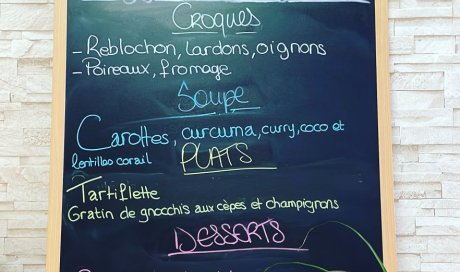 Croques
- Reblochon, lardons, oignons
- Poireaux, fromage
Soupe
Carottes, curcuma, curry, coco et
lentilles corail
PLATS
Tartiflette
Gratin de gnocchis aux cèpes et champignons
DESSERTS